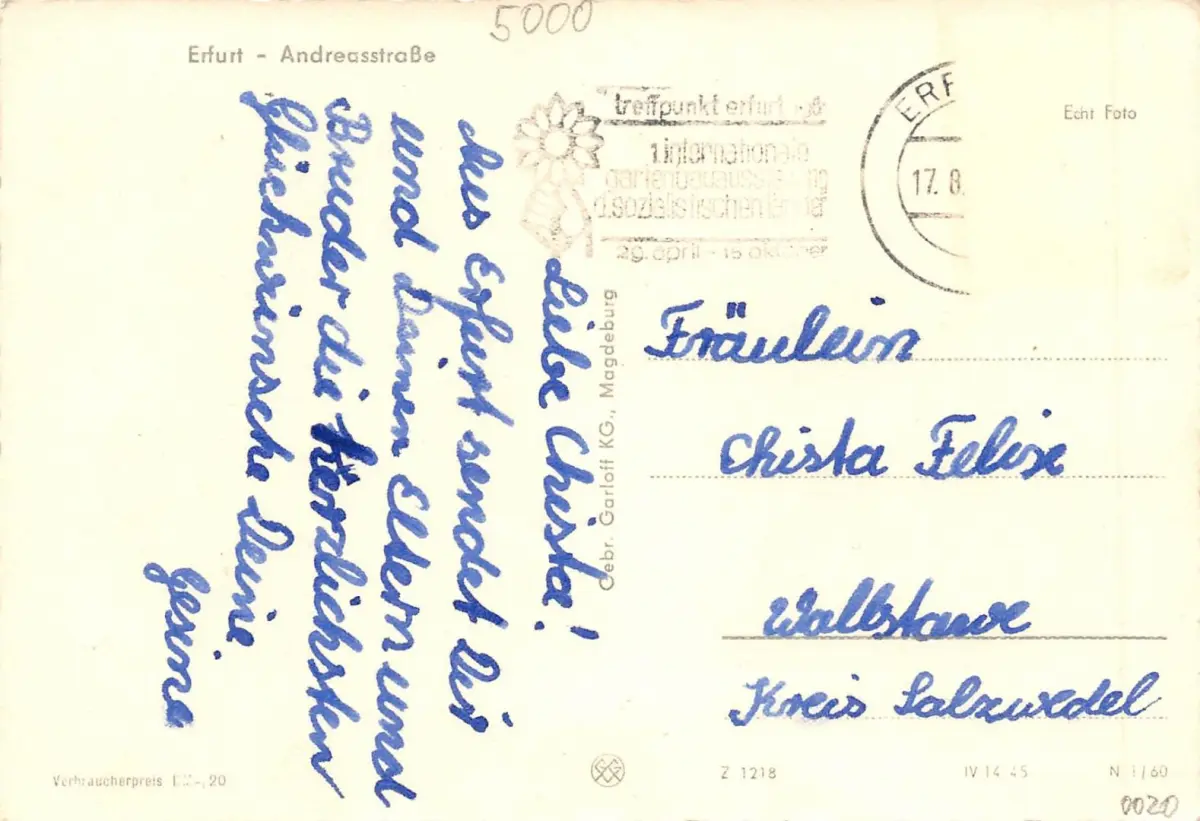 5000
Erfurt - Andreasstraße
treffpunkt erfurt
1. internationale
gartenbauausstellung
d. sozialistischen länder
29. april - 15 oktober
ERF
17. 8.
Echt Foto
Liebe Christa!
Aus Erfurt sendet Dir
und Deinen Eltern und
Bruder die herzlichsten
Glückwünsche Deine
Gesine
Gebr. Garloff KG., Magdeburg
Fräulein
Christa Felix
Wallstawe
Kreis Salzwedel
Verbraucherpreis DM -,20
Z 1218
IV 14 45
N 1/60
0020